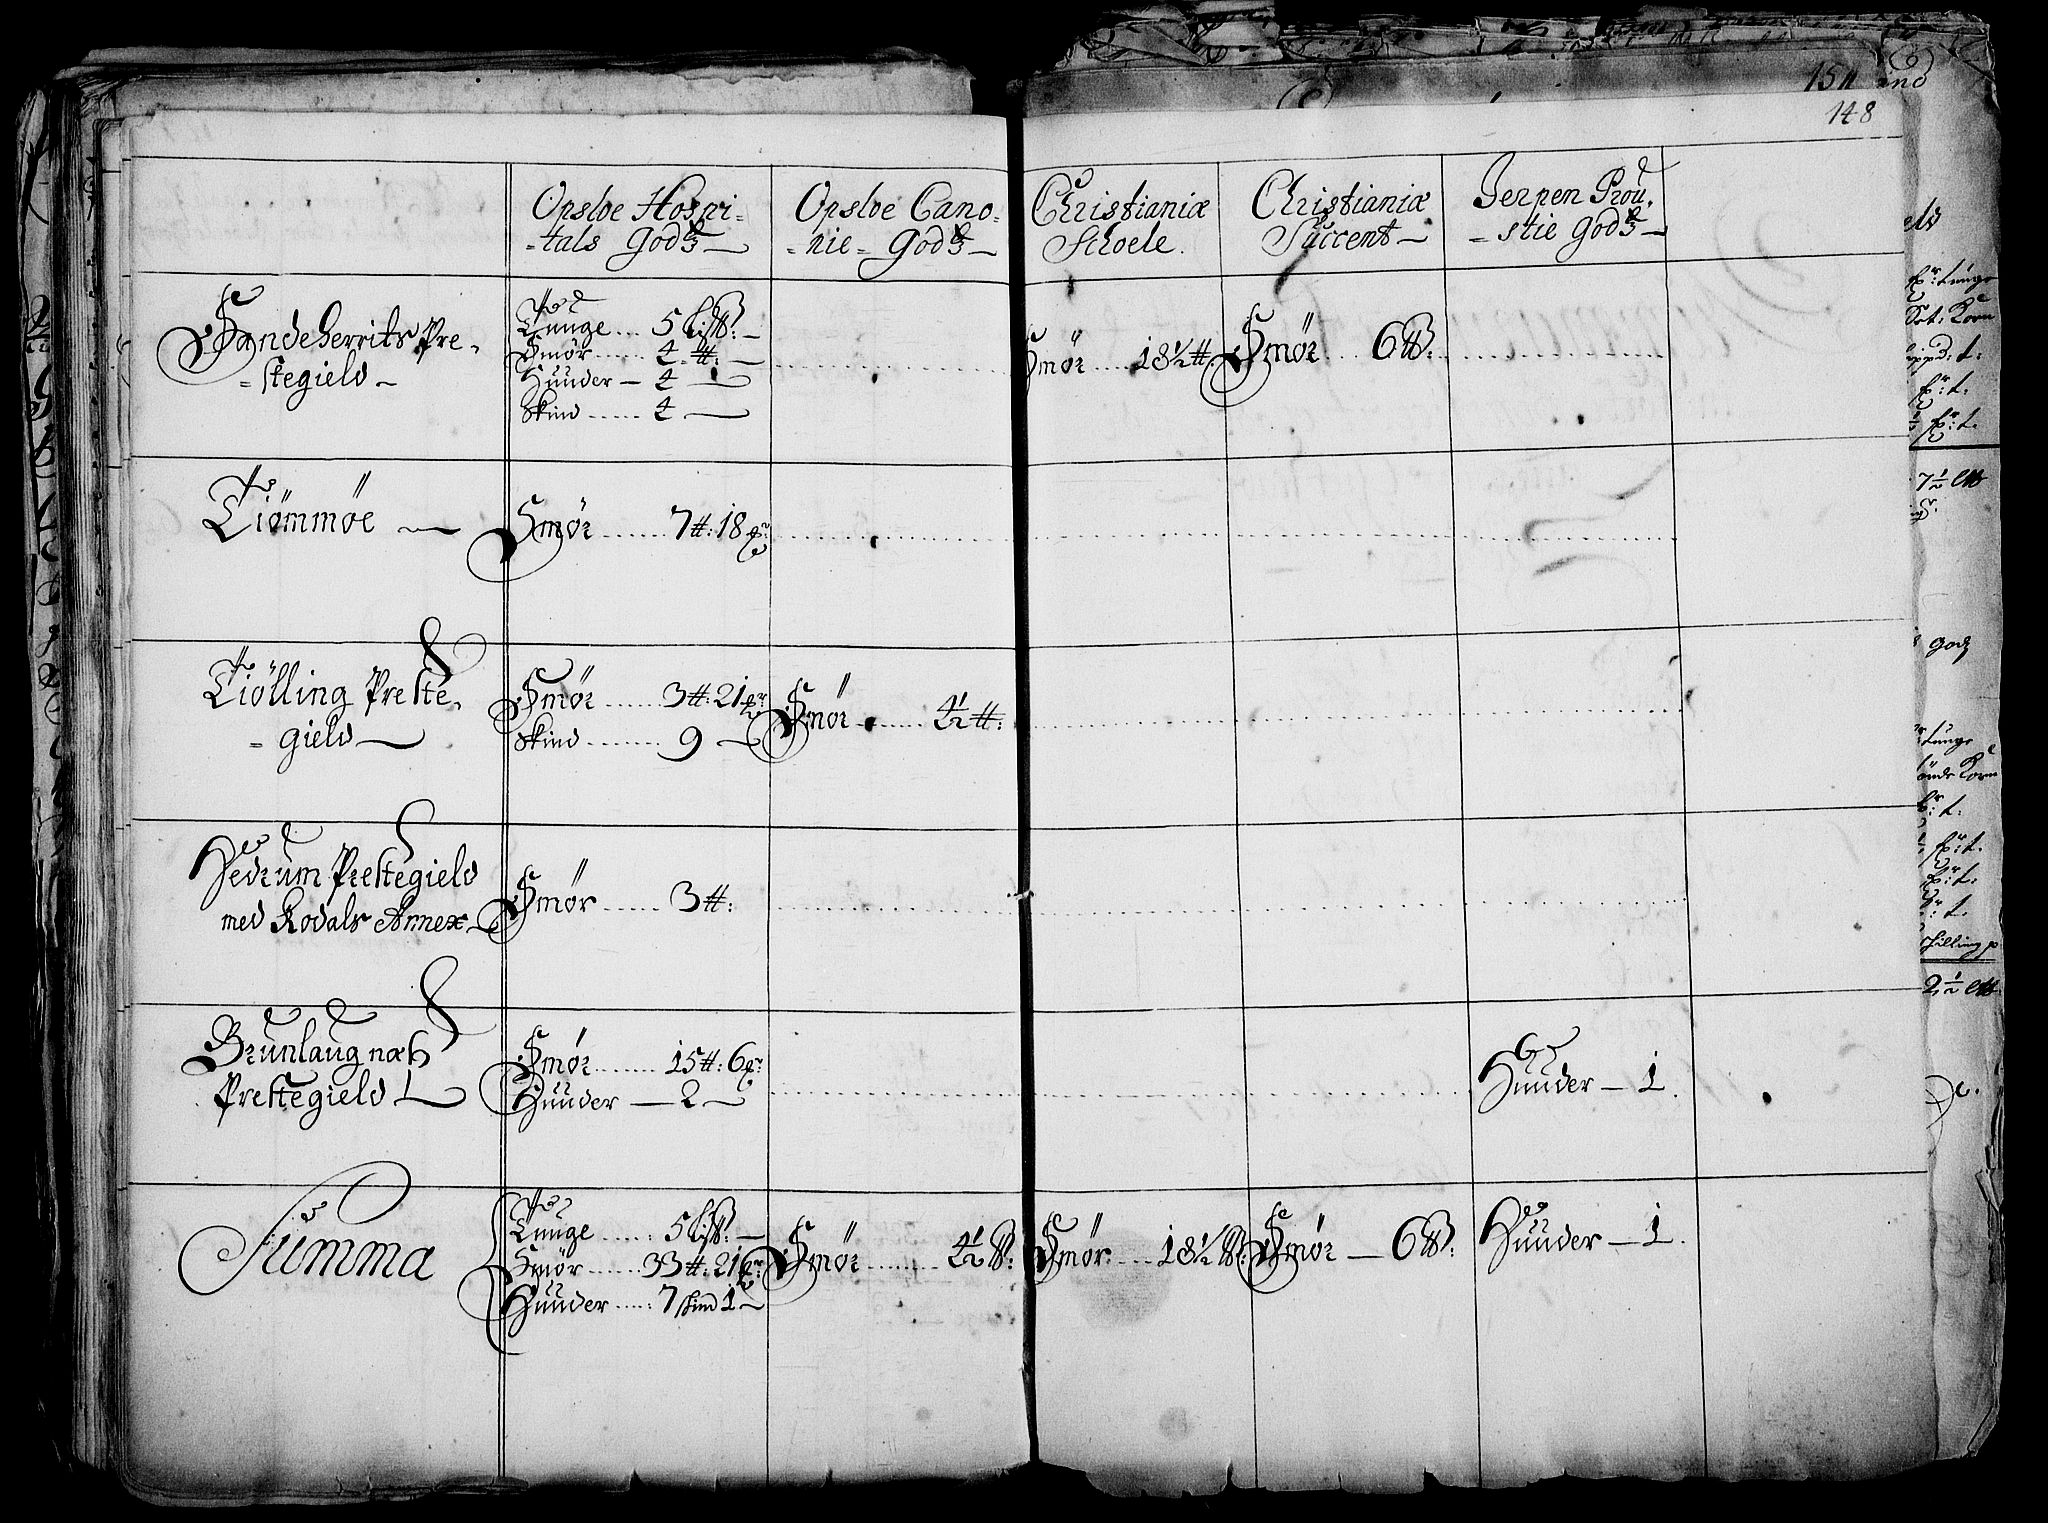 148
Opsloe Hospi-
-tals Godtz
Opsloe Cano-
-nie- Godtz
Christianiæ
Schoele.
Christianiæ
Succent
Jerpen Prou-
-stie Godtz
Sandeherrits Pre-
-stegield
Tunge .... 5 Lis℔:
Smør ...... 4 ℔:
Huuder — 4
Skind ...... 4
Smør ..... 18½ ℔
Smør .... 6 ℔:
Tiømmøe
Smør ....... 7 ℔: 18 ...
Tiølling Preste-
-gield
Smør ....... 3 ℔: 21 ...
Skind ........ 9
Smør ........ 4½ ℔:
Hedrum Prestegield
med Kodals Annex
Smør ...... 3 ℔:
Brunlaugnæs
Prestegield
Smør ......... 15 ℔: 6 ...
Huuder — 2
Huuder — 1.
Summa
Tunge ...... 5 Lis℔:
Smør ...... 33 ℔: 21 ...
Huuder ..... 7 skind 1
Smør ......... 4½ ℔:
Smør ..... 18½ ℔:
Smør — 6 ℔:
Huuder — 1.